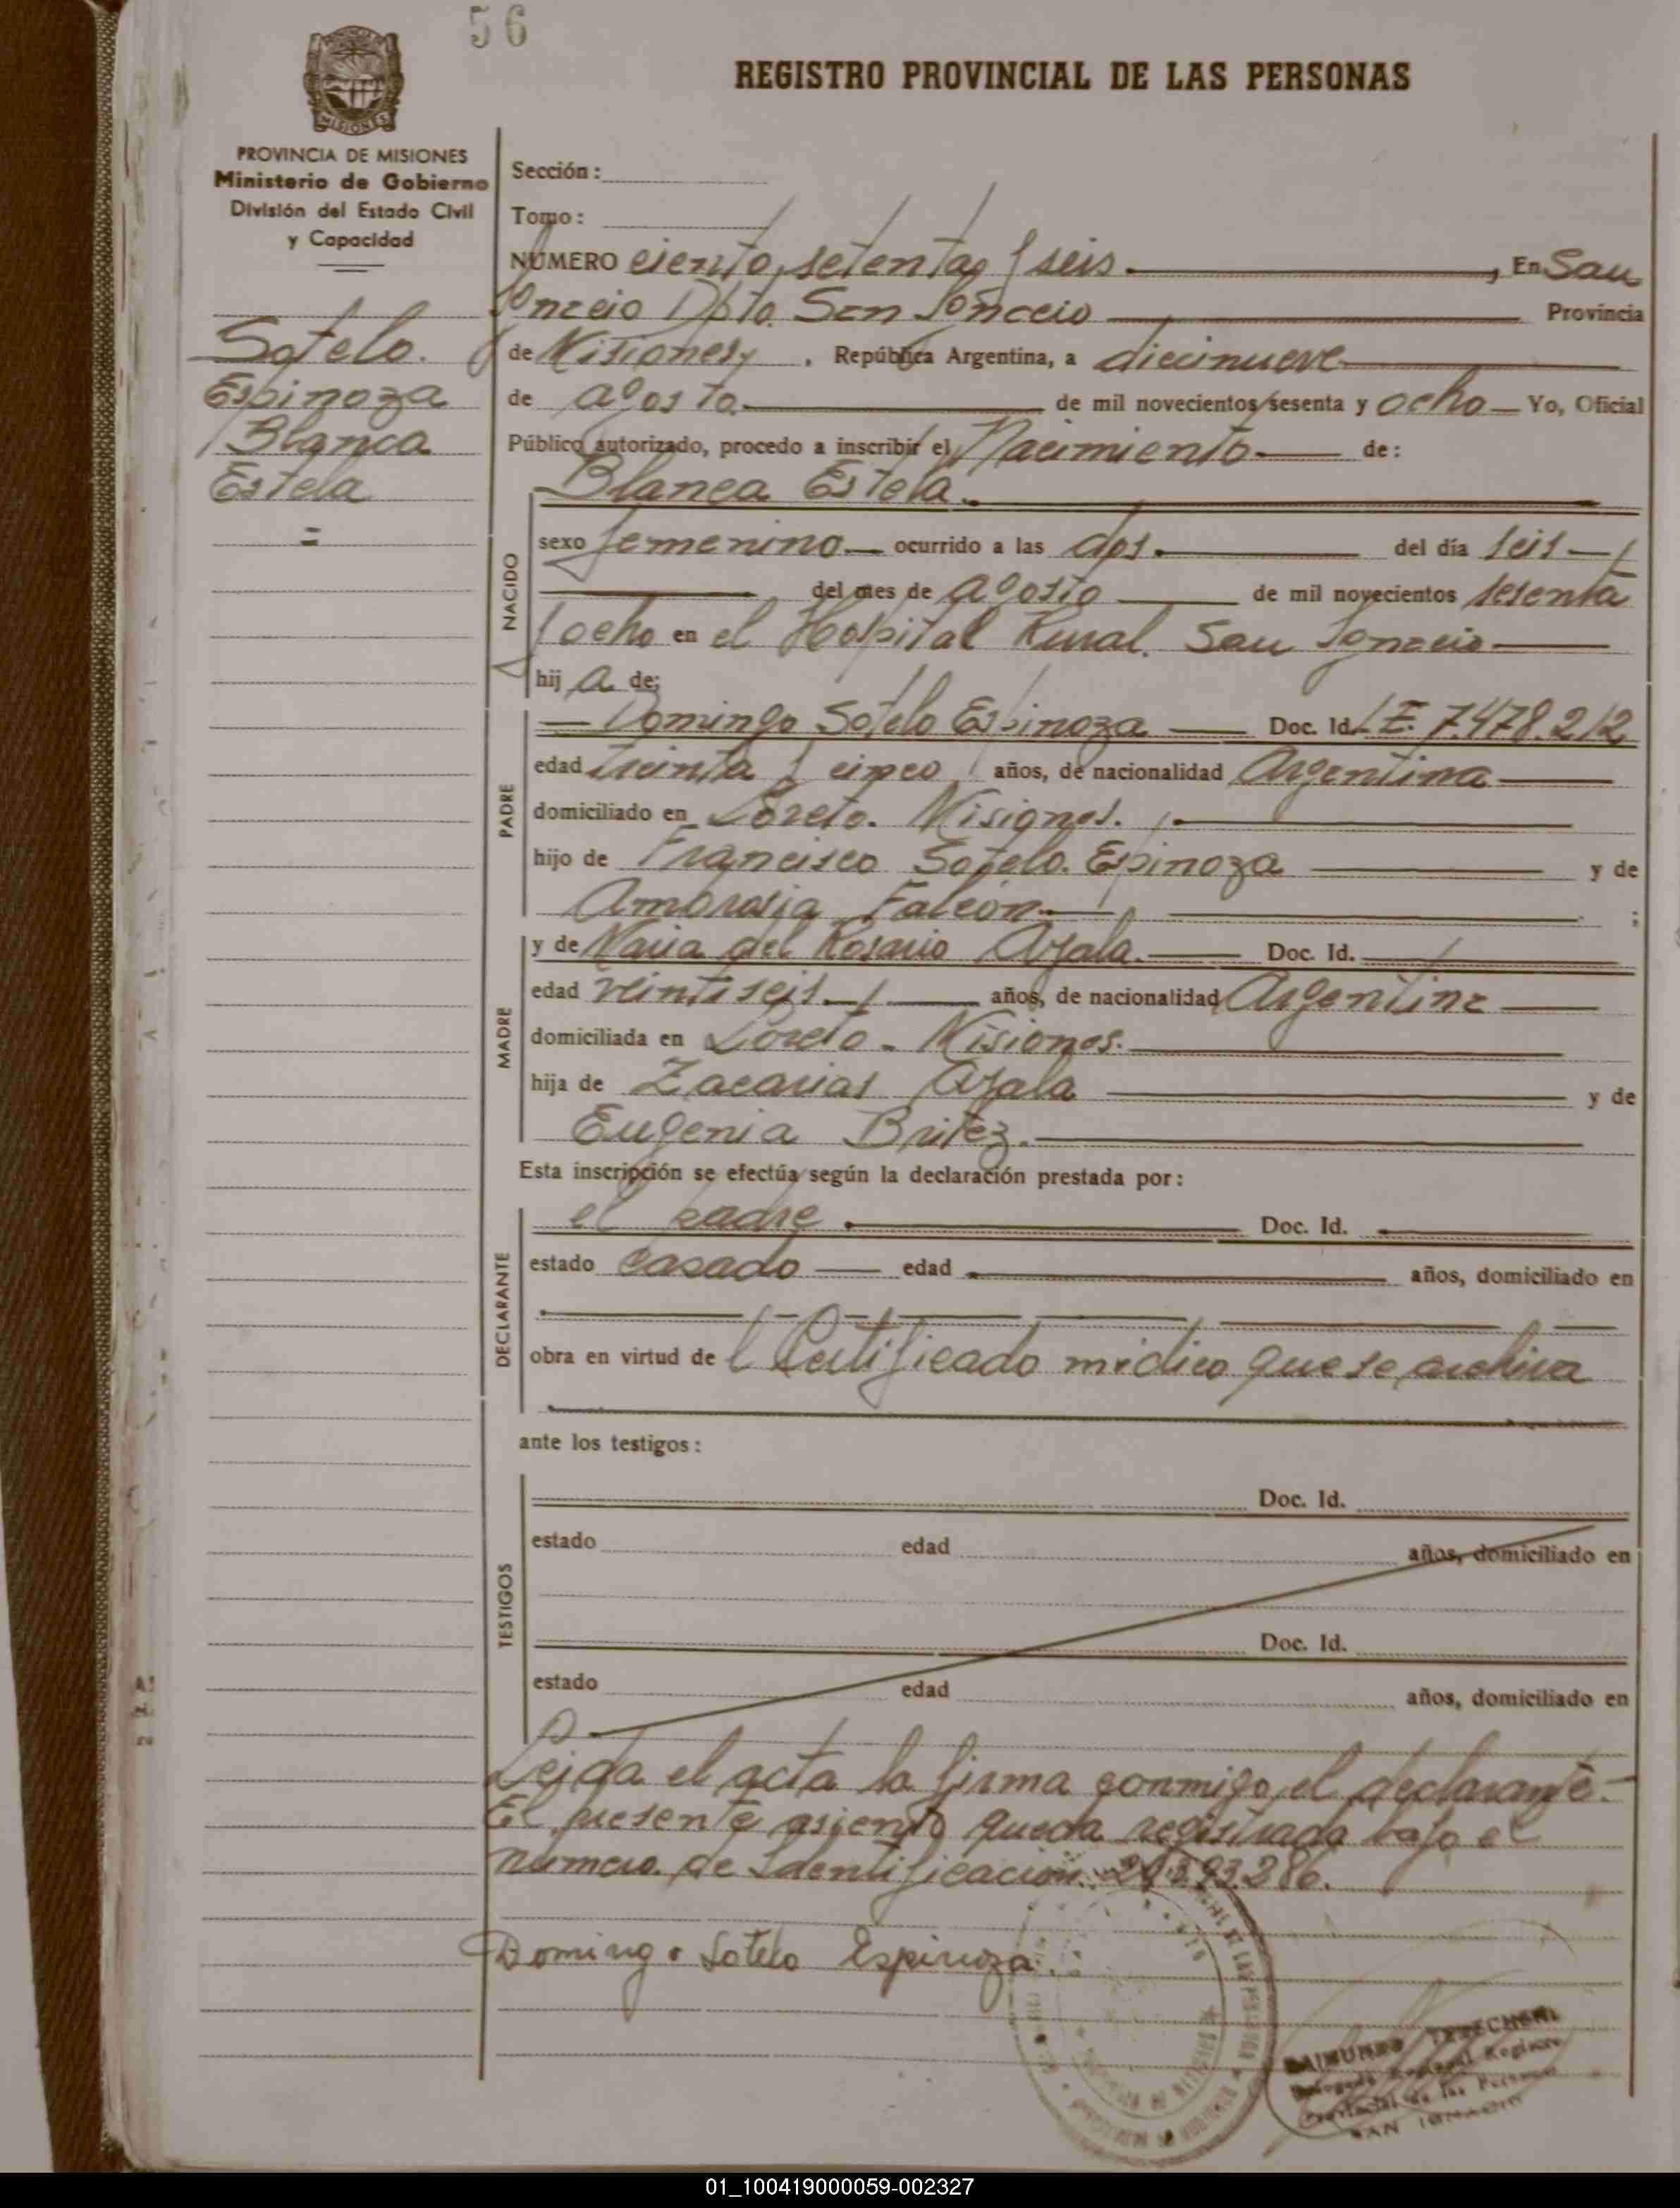 56
REGISTRO PROVINCIAL DE LAS PERSONAS
PROVINCIA DE MISIONES
MISIONES
PROVINCIA DE MISIONES
Ministerio de Gobierno
División del Estado Civil
y Capacidad
Sotelo
Espinoza
Blanca
Estela
=
Sección:
Tomo:
NUMERO ciento setenta y seis , En San
Ignacio Dpto. San Ignacio Provincia
de Misiones, República Argentina, a diecinueve
de agosto de mil novecientos sesenta y ocho Yo, Oficial
Público autorizado, procedo a inscribir el Nacimiento de:
Blanca Estela.
NACIDO
sexo femenino ocurrido a las dos. del día seis
del mes de agosto de mil novecientos sesenta
y ocho en el Hospital Rural. San Ignacio
hij a de:
PADRE
Domingo Sotelo Espinoza Doc. Id. L.E. 7.478.212
edad treinta y cinco años, de nacionalidad Argentina
domiciliado en Loreto. Misiones.
hijo de Francisco Sotelo. Espinoza y de
Ambrosia Falcón ;
MADRE
y de Maria del Rosario Ayala. Doc. Id.
edad veintiseis años, de nacionalidad Argentina
domiciliada en Loreto - Misiones.
hija de Zacarias Ayala y de
Eugenia Britez.
Esta inscripción se efectúa según la declaración prestada por:
DECLARANTE
el padre Doc. Id.
estado casado edad años, domiciliado en
obra en virtud de l Certificado médico que se archiva
ante los testigos:
TESTIGOS
Doc. Id.
estado edad años, domiciliado en
Doc. Id.
estado edad años, domiciliado en
Leida el acta la firma conmigo el declarante.-
El presente asiento queda registrado bajo el
numero de Identificacion
Domingo Sotelo Espinoza
RAIMUNDO
Registro
Provincial de las Personas
SAN IGNACIO
01_100419000059-002327